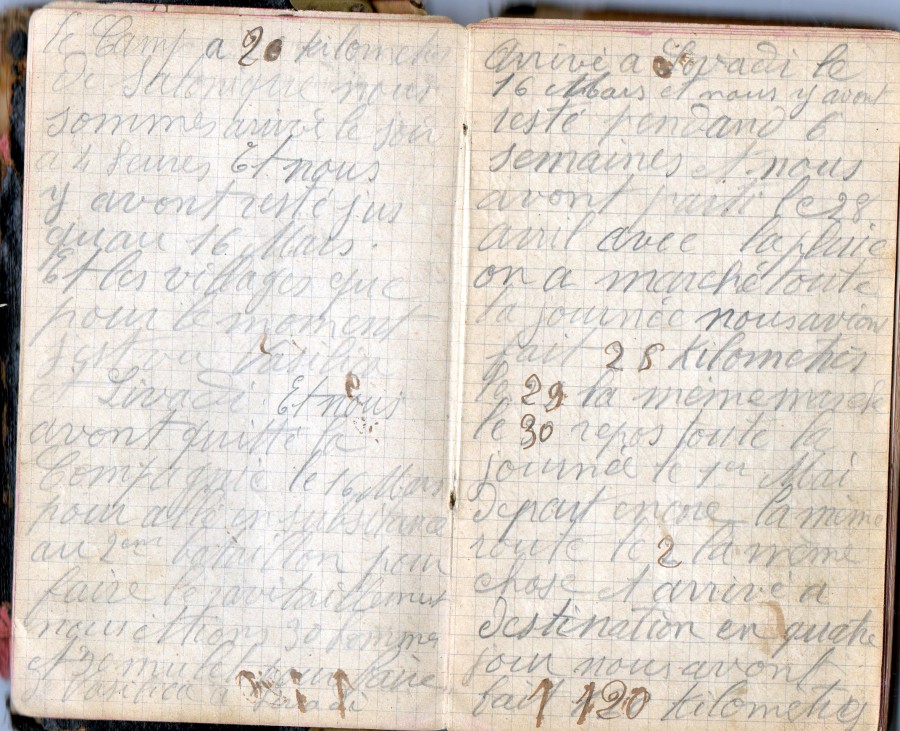 le Camp a 20 kilometres
de Salonique nous
sommes arrivé le soir
a 4 heures Et nous
y avont resté jus
quau 16 Mars.
Et les villages que
pour le moment
vasilica
et Livadi Et nous
avont quitté la
Compagnie le 16 Mars
pour allé en subsistance
au 2em bataillon pour
faire le ravitaillement
nous ettions 30 hommes
et 30 mulets pour faire
de Vasilica a Livadi
arrivé a Livadi le
16 Mars et nous y avont
resté pendand 6
semaines et nous
avont parti le 28
avril avec la pluie
on a marché toute
la journée nous avion
fait 28 kilometres
le 29 la meme marche
le 30 repos toute la
journée le 1er Mai
Depart encore la meme
route le 2 la meme
chose et arrivé a
destination en quatre
jour nous avont
fait 120 kilometres